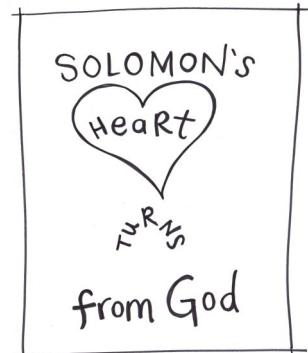 SOLOMON's
HeaRt
TURNS
from God